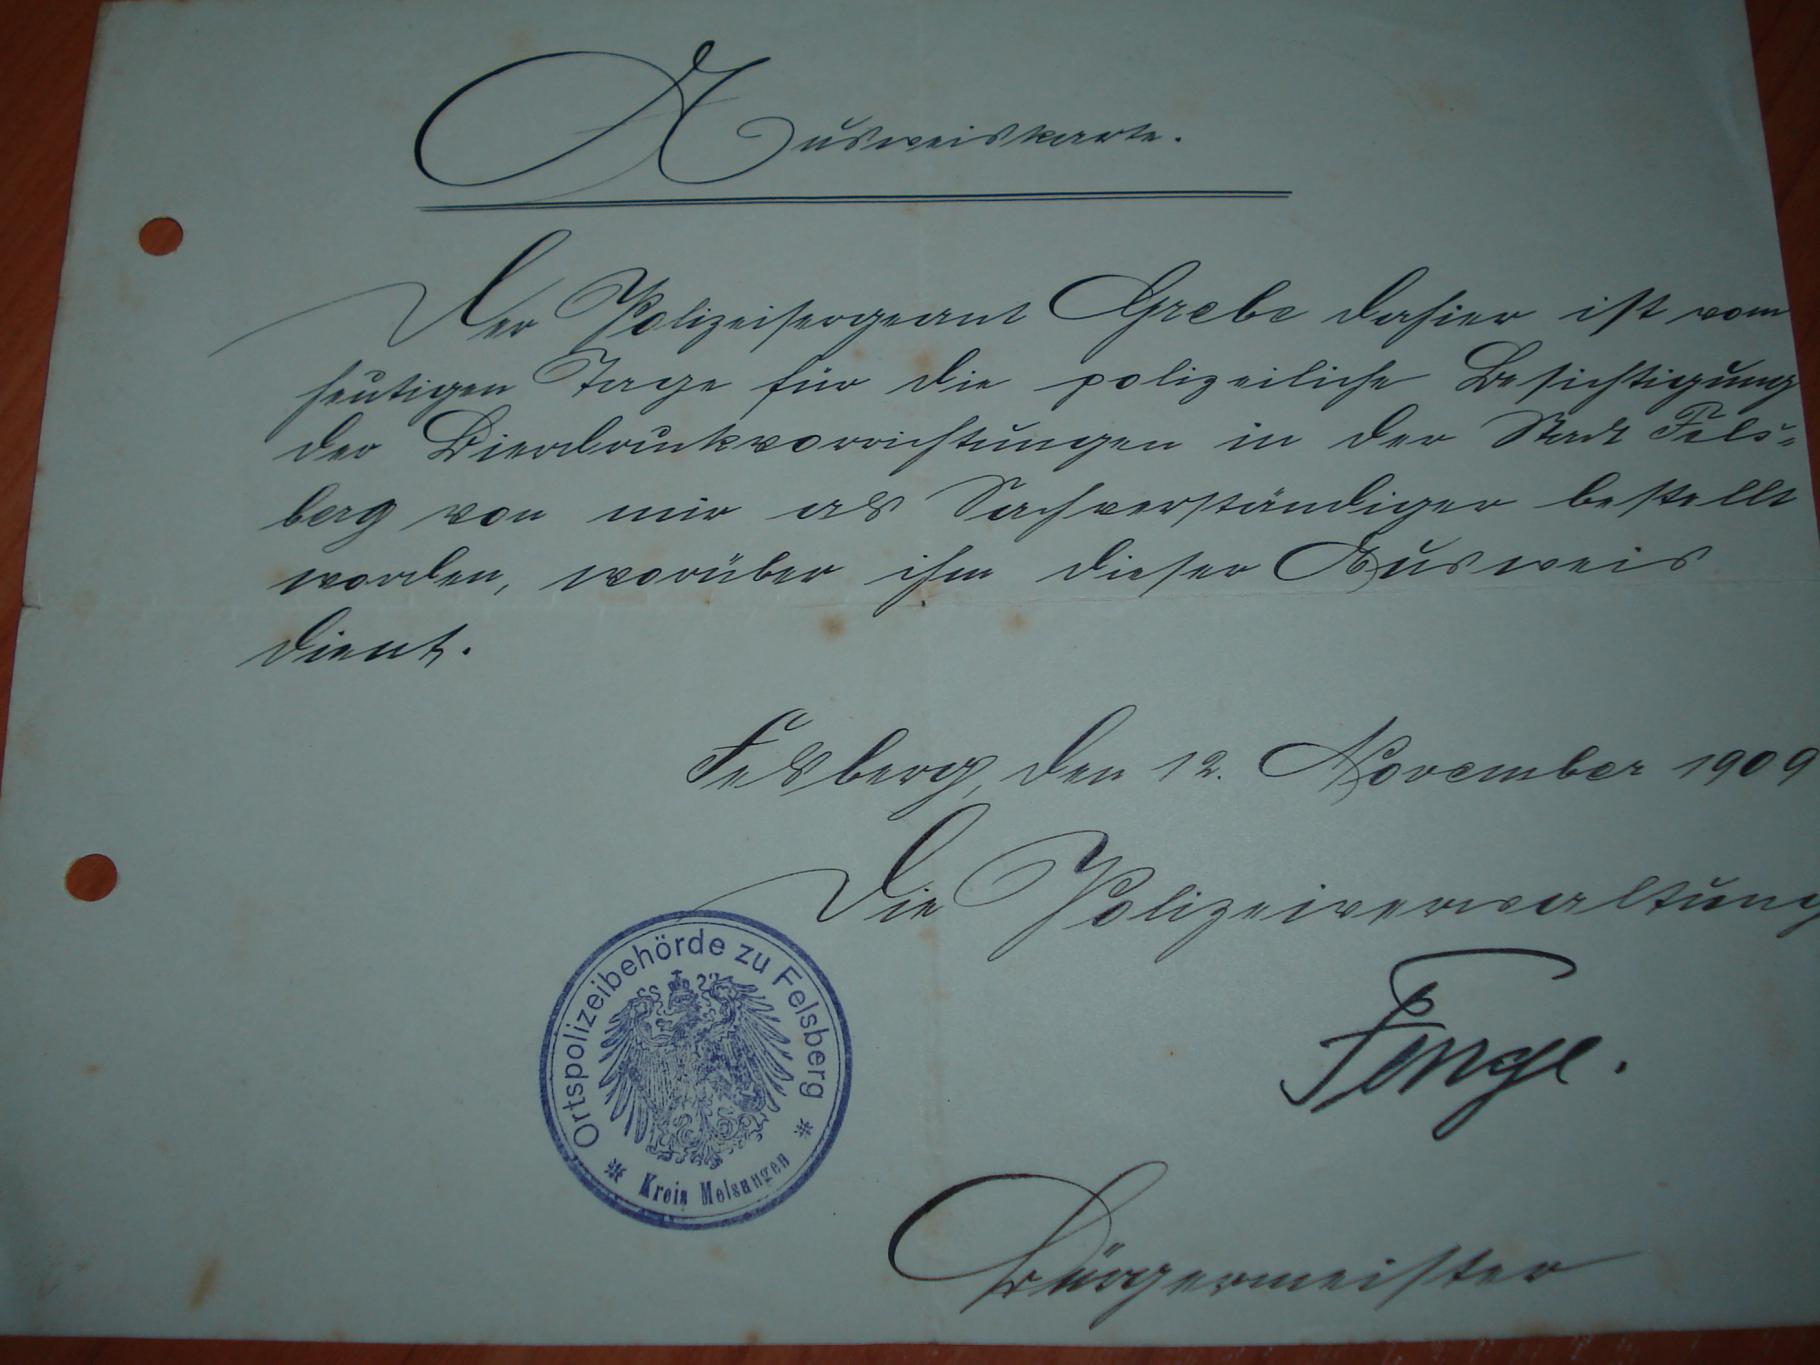 Ausweiskarte.
Der Polizeisergeant Grebe dahier ist vom
heutigen Tage für die polizeiliche Besichtigung
der Bierdruckvorrichtungen in der Stadt Fels-
berg von mir als Sachverständiger bestellt
worden, worüber ihm dieser Ausweis
dient.
Felsberg, den 12. November 1909
Die Polizeiverwaltung
Fenge.
Bürgermeister
Ortspolizeibehörde zu Felsberg
* Kreis Melsungen *